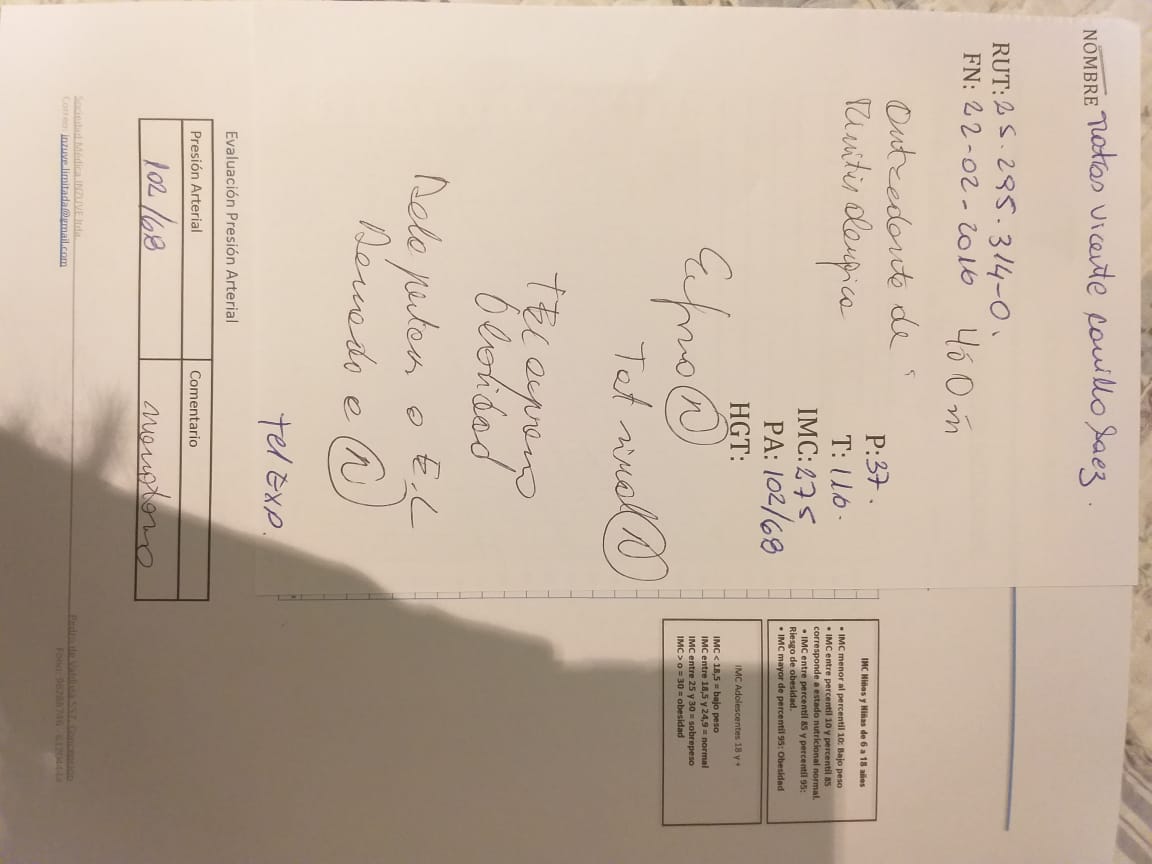 NOMBRE Matias Vicente Carrillo Saez.
RUT: 25.295.314-0.
FN: 22-02-2016
4ó 0 m
Antecedente de
Rinitis alergica
P: 37.
T: 116.
IMC: 275
PA: 102/68
HGT:
Ex fisico (N)
Tat (N)
TEC expreso
Obesidad
E.L
a (N)
tel EXP.
IMC Niños y Niñas de 6 a 18 años
• IMC menor al percentil 10: Bajo peso
• IMC entre percentil 10 y percentil 85
corresponde a estado nutricional normal.
• IMC entre percentil 85 y percentil 95:
Riesgo de obesidad.
• IMC mayor de percentil 95: Obesidad
IMC Adolescentes 18 y +
IMC < 18,5 = bajo peso
IMC entre 18,5 y 24,9 = normal
IMC entre 25 y 30 = sobrepeso
IMC > o = 30 = obesidad
Evaluación Presión Arterial
Presión Arterial Comentario
102/68
Sociedad Médica INZUVE ltda.
Correo: inzuve.limitada@gmail.com
Pedro de Valdivia 557, Concepción
Fono: